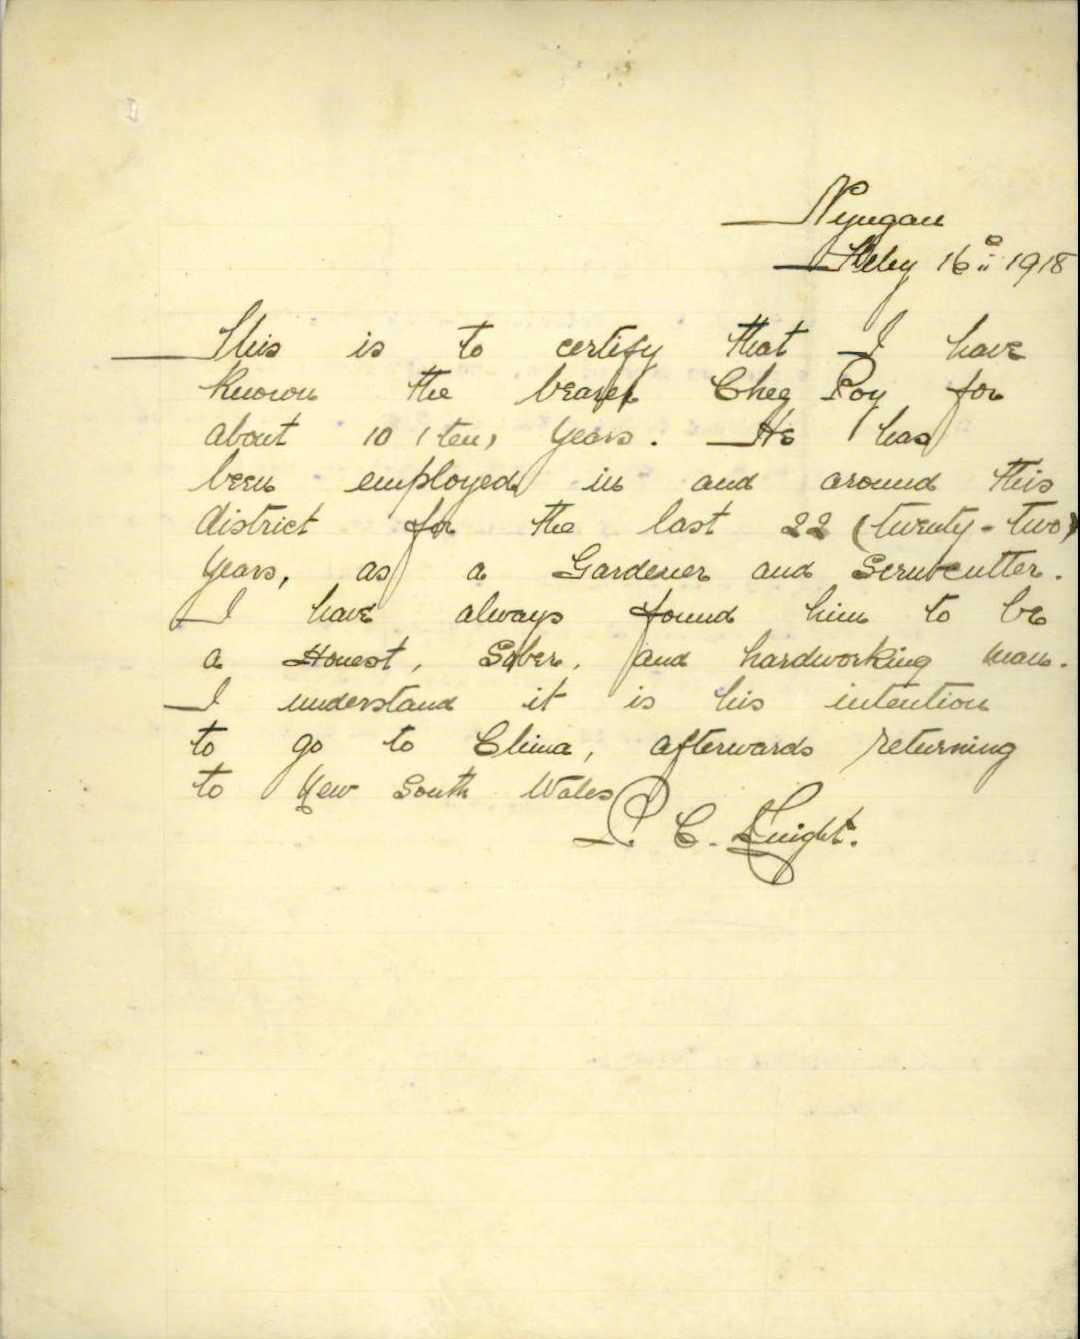 Nyngan
Feby 16th 1918
This is to certify that I have
known the bearer Cheg Poy for
about 10 (ten) years. He has
been employed in and around this
district for the last 22 (twenty-two)
years, as a Gardener and Scrubcutter.
I have always found him to be
a Honest, Sober, and hardworking man.
I understand it is his intention
to go to China, afterwards returning
to New South Wales
C. Knight.